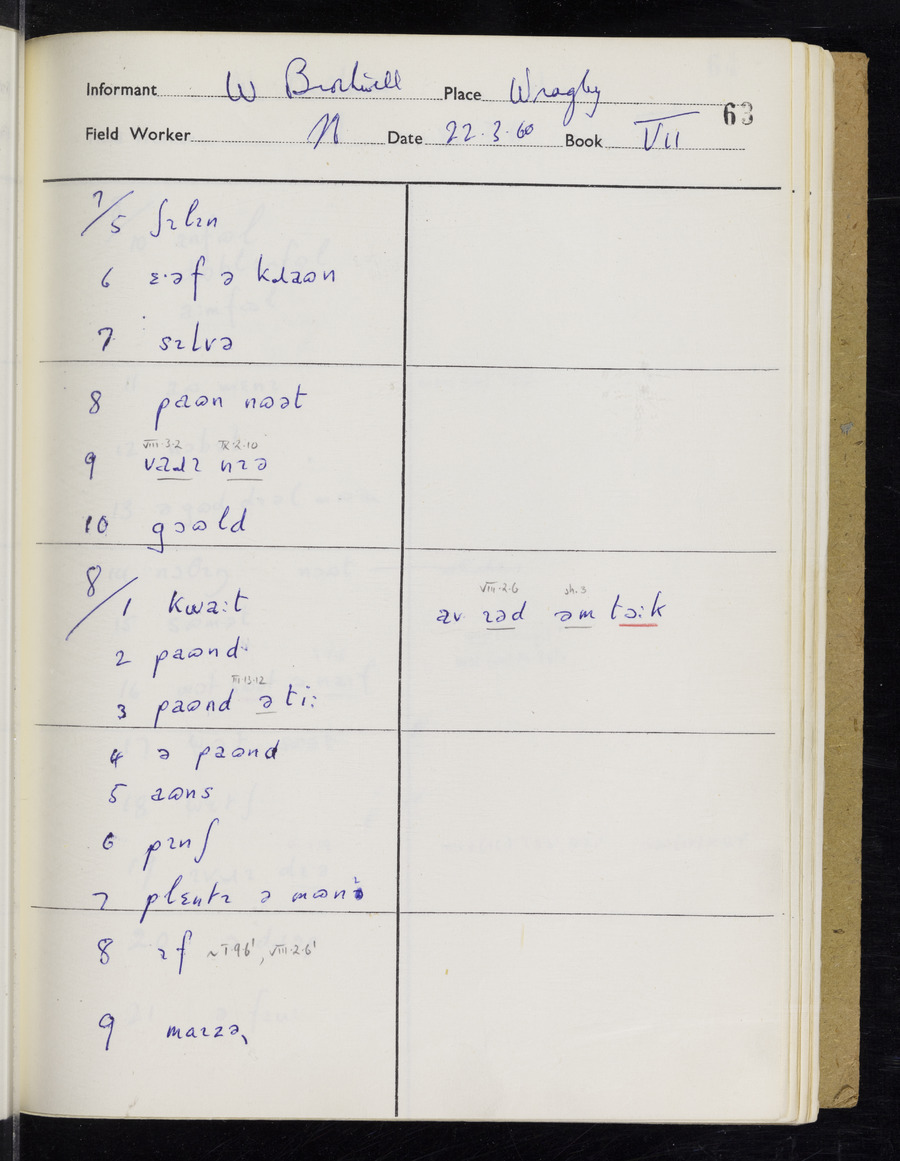 Informant W Place Wragby
63
Field Worker N Date 22.3.60 Book VII
7/5 ʃɪlɪn
6 ɛ·əf ə kɹaʊn
7 sɪlvə
8 paʊn nʊət
9 nɪə
VIII.3.2 IX.2.10
10 gɔʊld
8/1 kwa:t
av ɪəd əm tɔ:k
VIII.2.6 sh.3
2 paʊnd
3 paʊnd ə ti:
III.13.12
4 ə paʊnd
5 aʊns
6 pɪnʃ
7 plɛntɪ ə mʊnɪ
8 ɪf ~I.9.6', VIII.2.6'
9